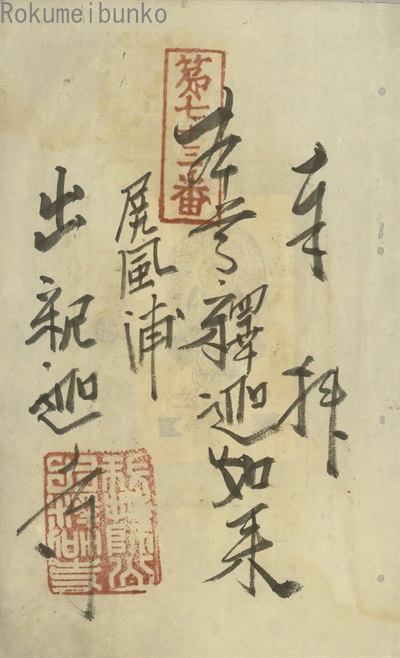 Rokumeibunko
奉拝
第七十三番
本尊釋迦如来
屏風浦
出釈迦寺